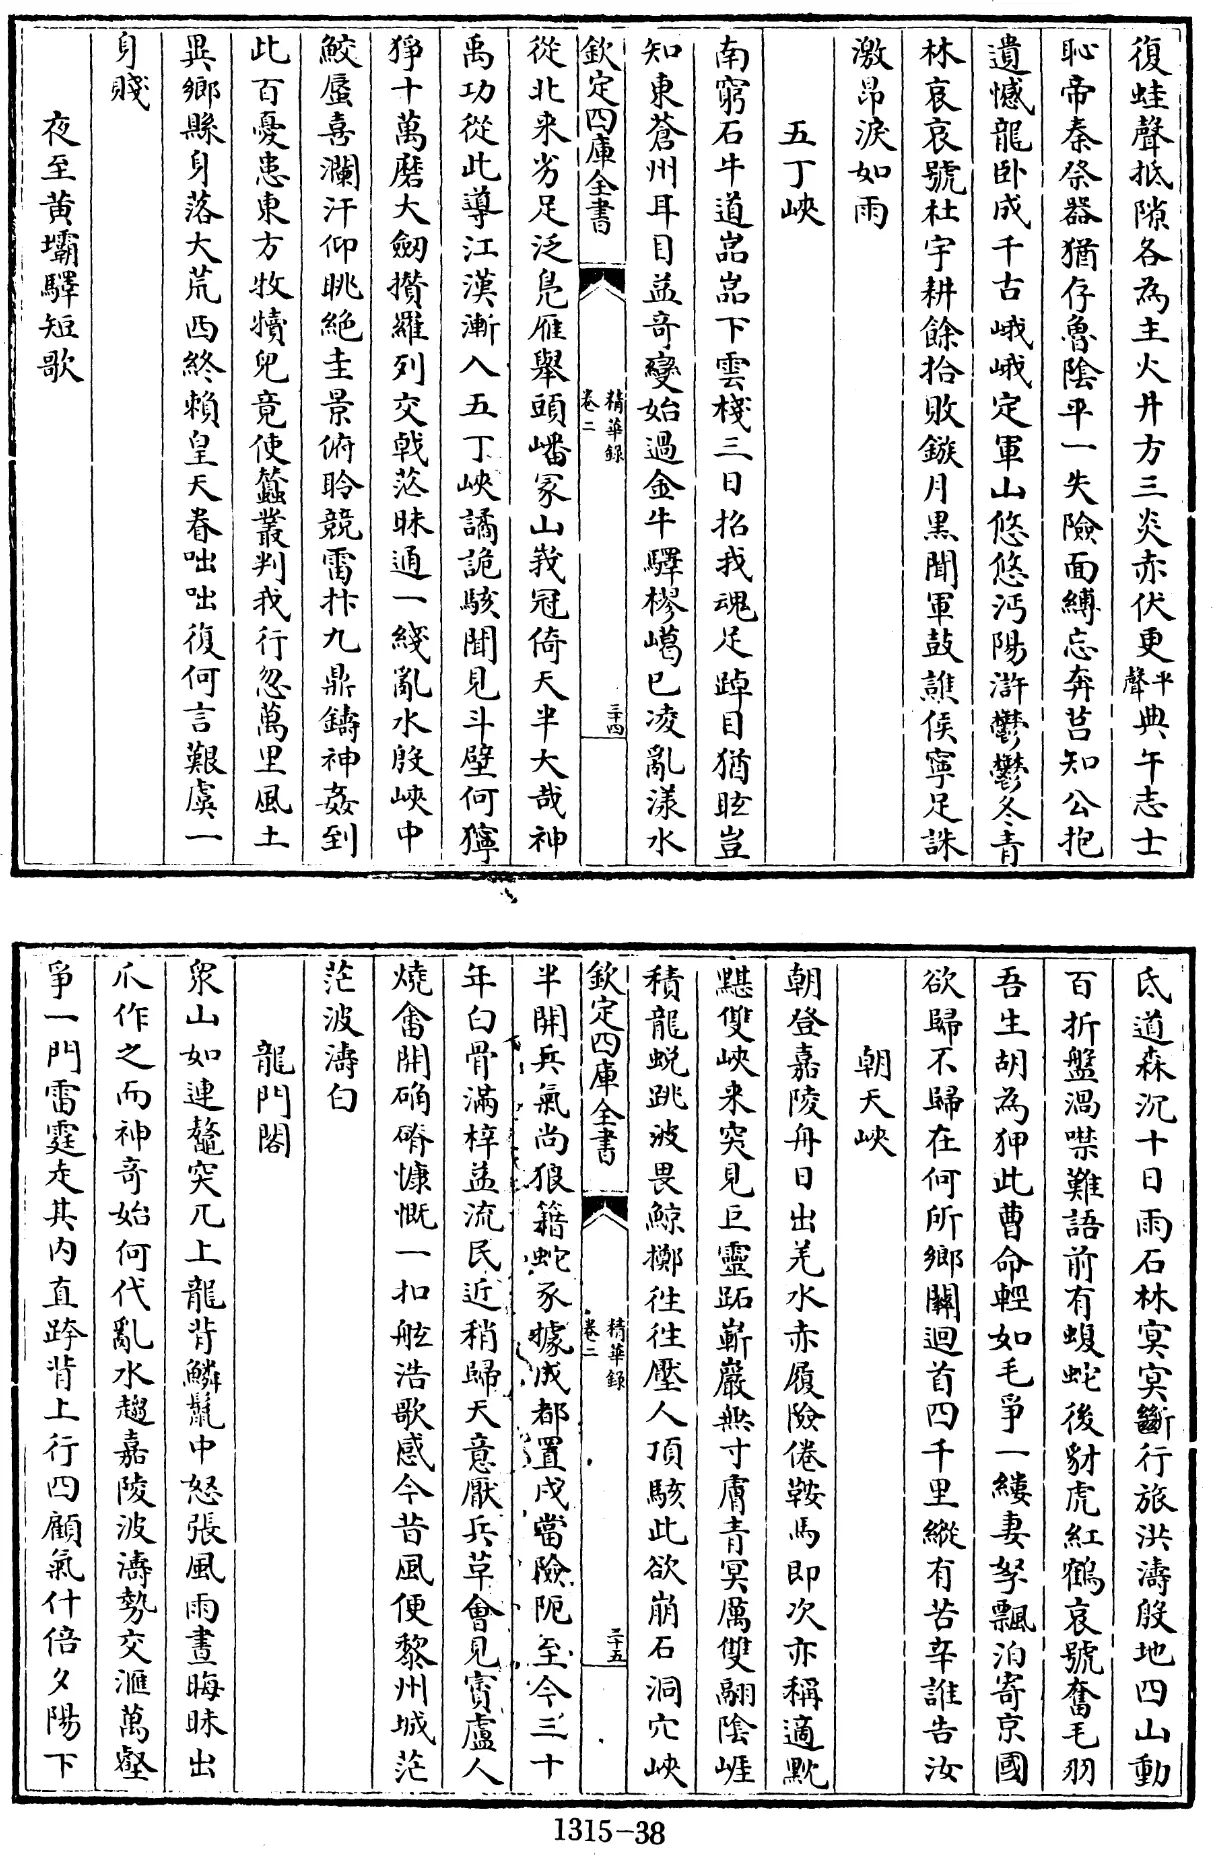 復蛙聲抵隙各為主火井方三炎赤伏更平聲典午志士
恥帝秦祭器猶存魯陰平一失險面縛忘奔莒知公抱
遺憾龍卧成千古峨峨定軍山悠悠沔陽滸鬱鬱冬青
林哀哀號杜宇耕餘拾敗鏃月黒聞軍鼓譙侯寧足誅
激昂淚如雨
五丁峽
南窮石牛道嵓嵓下雲棧三日招我魂足踔目猶眩豈
知東蒼州耳目益竒變始過金牛驛樛嶱已凌亂漾水
欽定四庫全書
精華錄
卷二
三十四
從北来劣足泛鳧雁舉頭嶓冢山峩冠倚天半大哉神
禹功從此導江漢漸入五丁峽譎詭駭聞見斗壁何獰
猙十萬磨大劔攢羅列交戟茫昧通一綫亂水殷峽中
鮫蜃喜瀾汗仰眺絶圭景俯聆競雷抃九鼎鑄神姦到
此百憂患東方牧犢兒竟使蠶叢判我行忽萬里風土
異鄉縣身落大荒西終賴皇天眷咄咄復何言艱虞一
身賤
夜至黄壩驛短歌
氐道森沉十日雨石林冥冥斷行旅洪濤殷地四山動
百折盤渦噤難語前有蝮蛇後豺虎紅鶴哀號奮毛羽
吾生胡為狎此曹命輕如毛爭一縷妻孥飄泊寄京國
欲歸不歸在何所鄉關迴首四千里縱有苦辛誰告汝
朝天峽
朝登嘉陵舟日出羌水赤履險倦鞍馬即次亦稱適黕
黮雙峽来突見巨靈跖嶄巖無寸膚青冥厲雙翮陰崕
積龍蛻跳波畏鯨擲徃徃壓人頂駭此欲崩石洞穴峽
欽定四庫全書
精華錄
卷二
三十五
半開兵氣尚狼籍蛇豕據成都置戍當險阨至今三十
年白骨滿梓益流民近稍歸天意厭兵革會見賨盧人
燒畬開确瘠慷慨一扣舷浩歌感今昔風便黎州城茫
茫波濤白
龍門閣
衆山如連鼇突兀上龍背鱗鬣中怒張風雨晝晦昧出
爪作之而神竒始何代亂水趨嘉陵波濤勢交滙萬壑
爭一門雷霆走其内直跨背上行四顧氣什倍夕陽下
1315-38